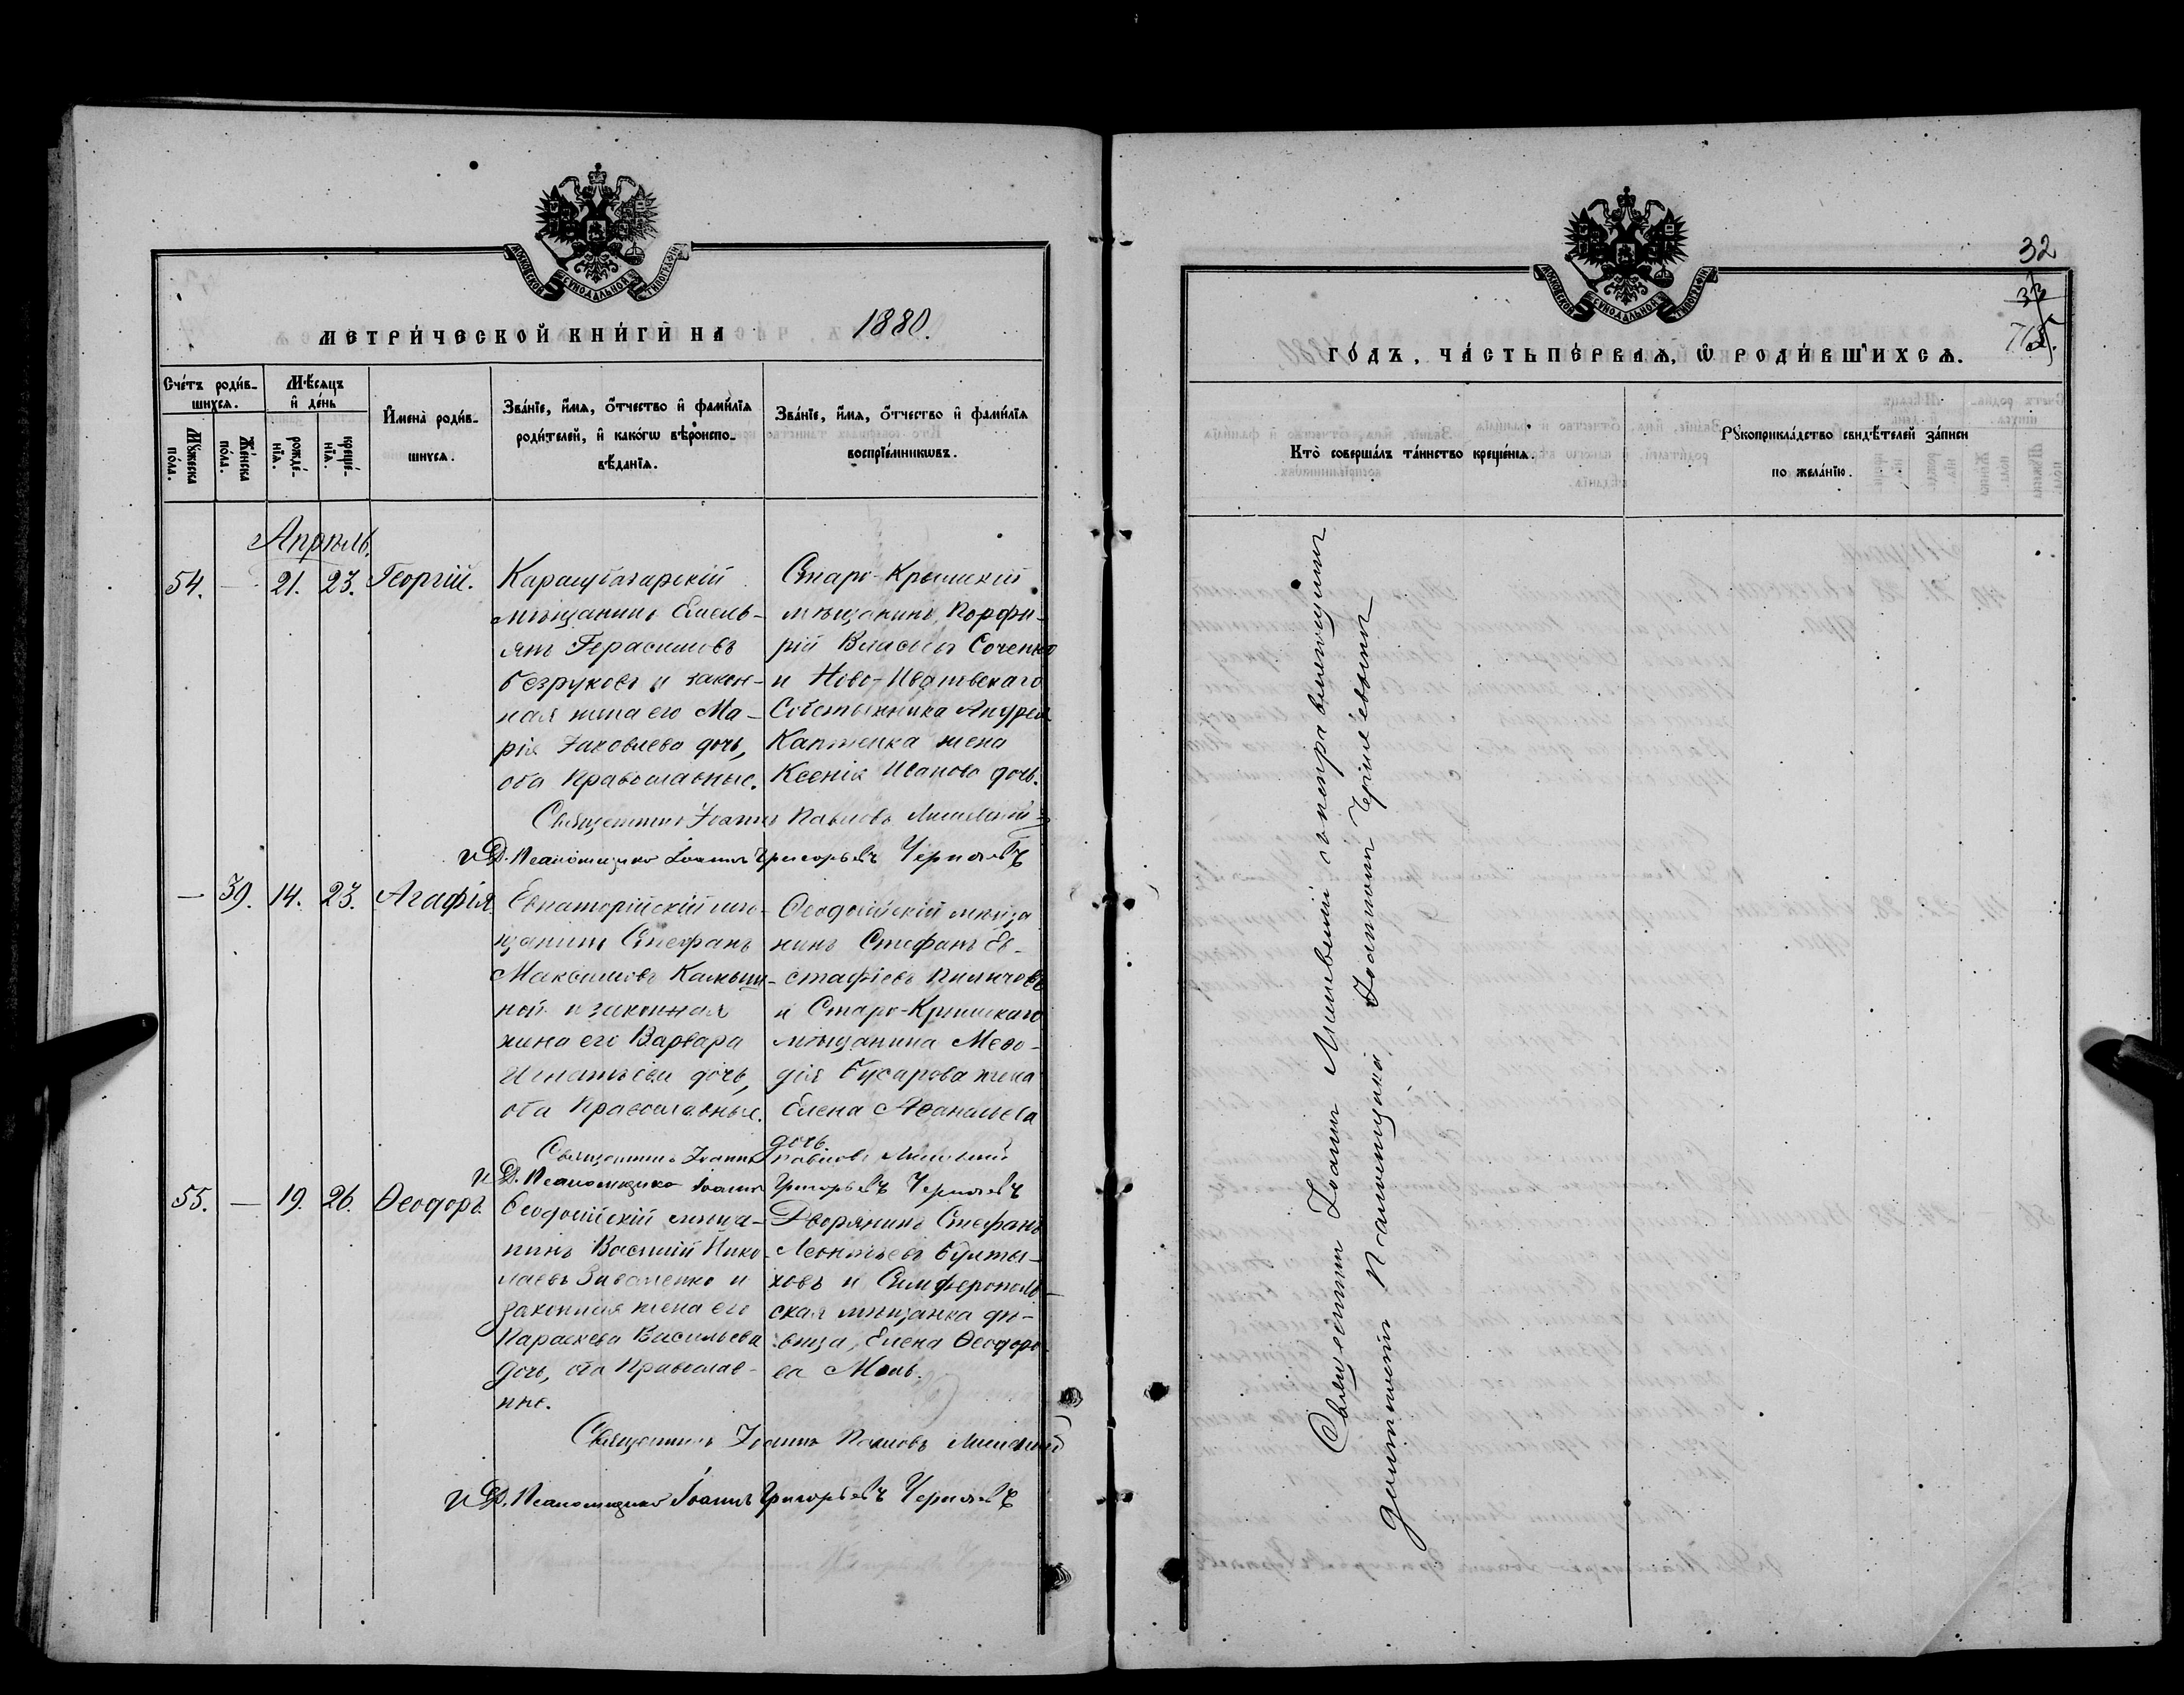 МОСКОВСКОЙ СѴНОДАЛЬНОЙ ТИПОГРАФІИ
МЕТРИ́ЧЕСКОЙ КНИ́ГИ НА 1880.
Сче́тъ роди́в-
шихся.
Мѣ́сяцъ
и де́нь
Мꙋ́жеска
по́ла.
Же́нска
по́ла.
рожде́-
нїя.
креще́-
нїя.
Имена̀ роди́в-
шихся.
Зва́нїе, и́мя, о́тчество и фами́лїя
роди́телей, и како́гѡ вѣроиспо-
вѣ́данїя.
Зва́нїе, и́мя, о́тчество и фами́лїя
воспрїе́мникѡвъ.
Апрѣль.
54. — 21. 23. Георгій.
Карасубазарскій
мѣщанинъ Емель-
янъ Герасимовъ
Безруковъ и закон-
ная жена его Ма-
рія Іаковлева дочь,
оба Православные.
Старо-Крымскій
мѣщанинъ, Порфи-
рій Власовъ Соченко
и Ново-Ивановскаго
Собственника Андрея
жена
Ксенія Иванова дочь.
Священникъ Іоаннъ Павловъ
И Д. Псаломщика Іоаннъ Григорьевъ Черняевъ
— 39. 14. 23. Агафія.
Евпаторійскій мѣ-
щанинъ Стефанъ
Максимовъ Камыш-
ной и законная
жена его Варвара
Игнатьева дочь,
оба Православные.
Ѳеодосійскій мѣща
нинъ Стефанъ Ев-
стафіевъ
и Старо-Крымскаго
мѣщанина Меѳо-
дія Бусарова жена
Елена Аѳанасьева
дочь
Священникъ Іоаннъ Павловъ
И Д. Псаломщика Іоаннъ Григорьевъ Черняевъ
55. — 19. 26. Ѳеодоръ.
Ѳеодосійскій мѣща-
нинъ Василій Нико-
лаевъ и
законная жена его
Параскева Васильева
дочь, оба Православ-
ные.
Дворянинъ Стефанъ
Леонтьевъ Булты-
ховъ и Симферополь-
ская мѣщанка дѣ-
вица, Елена Ѳеодоро-
ва
Священникъ Іоаннъ Павловъ
И Д. Псаломщика Іоаннъ Григорьевъ Черняевъ
32
33
МОСКОВСКОЙ СѴНОДАЛЬНОЙ ТИПОГРАФІИ
ГО́ДЪ, ЧА́СТЬ ПЕ́РВАЯ, Ѿ РОДИ́ВШИХСЯ.
Кто̀ соверша́лъ та́инство креще́нїя.
Рꙋкоприкла́дство свидѣ́телей за́писи
по жела́нїю.
Священникъ Іоаннъ
Іоанномъ